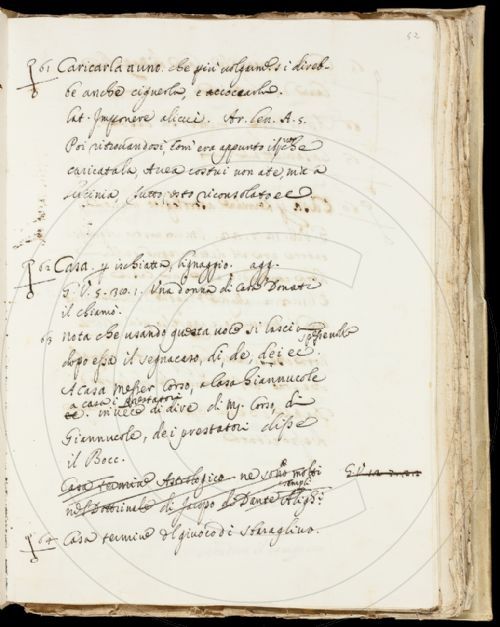 52
61 Caricarla a uno. che più volgarmes si direb-
be anche cignerla, e accoccarla.
lat. Imponere alicui. Ar. len. A. 5.
Poi ritrovandosi, Con era appunto il che
caricatala, Avea costui non a te, m'a a
tutto, riconsolato ec.
62 Casa. p ischiatta, lignaggio. agg.
G. V. 5. 30. 1. Una donna di casa Donati
il chiamò.
63 Nota che usando questa voce si lascia sovente
dopo essa il segnacaso, di, de, dei ec.
A casa Messer Corso, a casa Giannucole
a casa i prestatori
ec. in vece di dire di M. Corso, di
Giannucole, dei prestatori disse
il Bocc.
Casa termine Astrologico ne sono molti
esempli
nel Dottrinale di Jacopo di Dante Alighi.
64 Casa termine del giuoco di sbaraglino.